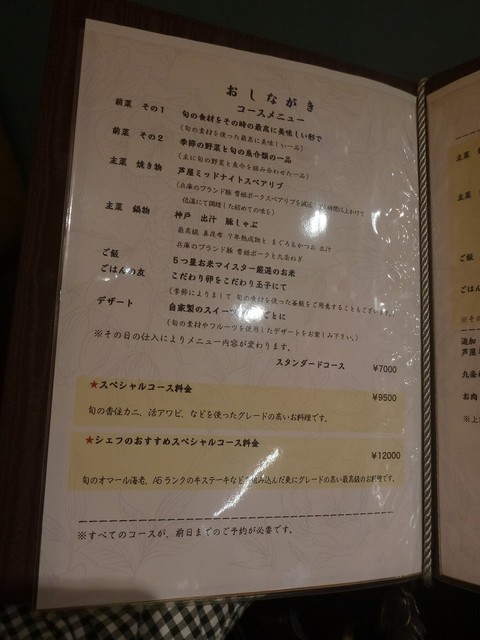 おしながき
コースメニュー
前菜 その1 旬の食材をその時の最高に美味しい形で
(旬の素材を使った最高に美味しい一品)
前菜 その2 季節の野菜と旬の魚介類の一品
(主に旬の野菜と魚介を組み合わせた一品)
主菜 焼き物 芦屋ミッドナイトスペアリブ
(兵庫のブランド豚 雪姫ポークスペアリブを 時間以上かけて
低温にて調理した初めての味を)
主菜 鍋物 神戸 出汁 豚しゃぶ
最高級 真昆布 7年熟成麹と まぐろ&かつお 出汁
兵庫のブランド豚 雪姫ポークと九条ねぎ
ご飯 5つ星お米マイスター厳選のお米
ごはんの友 こだわり卵をこだわり玉子にて
(季節によりまして 旬の食材を使った釜飯をご用意することもございます)
デザート 自家製のスイーツ ごとに
(旬の素材やフルーツを使用したデザートをお楽しみ下さい。)
※その日の仕入によりメニュー内容が変わります。
スタンダードコース ¥7000
★スペシャルコース料金 ¥9500
旬の香住カニ、活アワビ、などを使ったグレードの高いお料理です。
★シェフのおすすめスペシャルコース料金 ¥12000
旬のオマール海老、A5ランクの牛ステーキなど 組み込んだ更にグレードの高い最高級のお料理です。
※すべてのコースが、前日までのご予約が必要です。
主菜
主菜
ご飯
※その
追加
芦屋
九条
お肉
※上